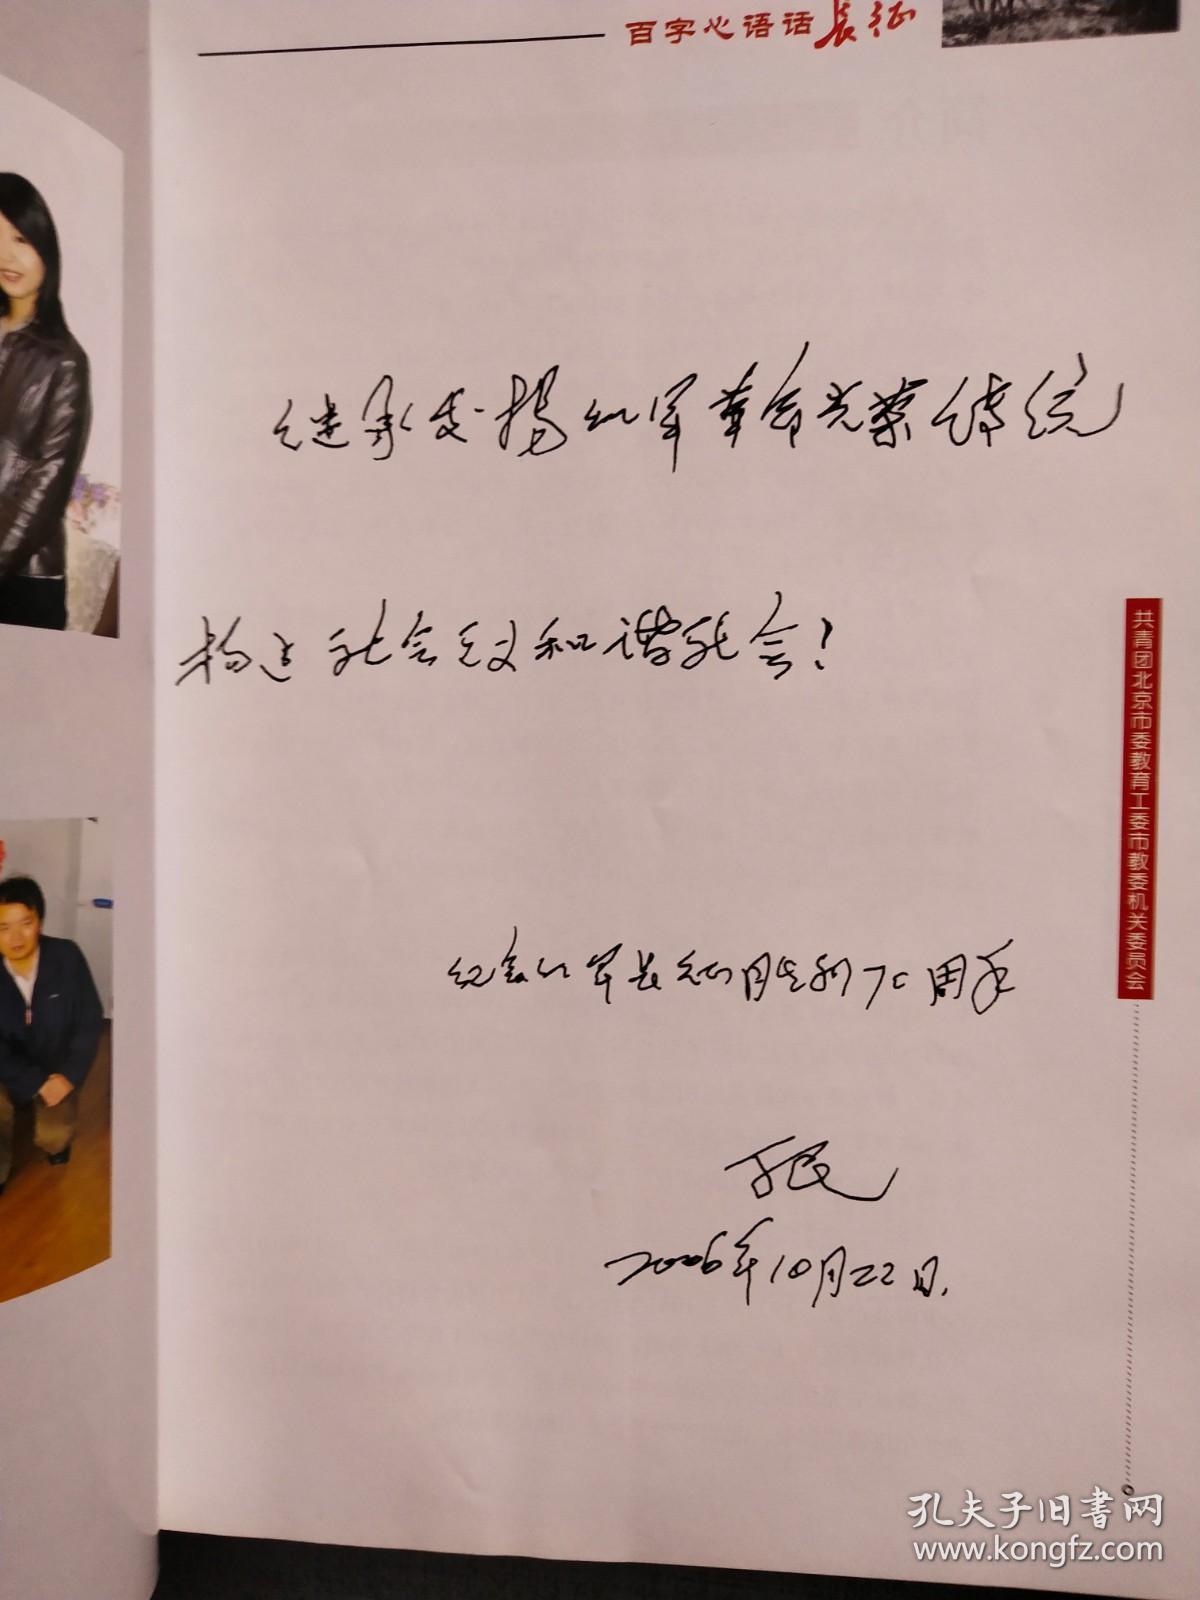 百字心语话长征
继承发扬红军革命光荣传统
构建社会主义和谐社会!
纪念红军长征胜利70周年
2006年10月22日.
共青团北京市委教育工委市教委机关委员会
孔夫子旧书网
www.kongfz.com